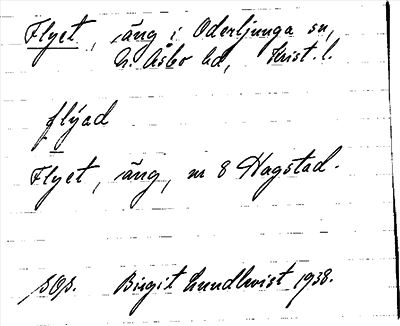 Flyet, äng i Oderljunga sn,
N. Åsbo hd, Krist. l.
flýad
Flyet, äng, nr 8 Hagstad.
Birgit Lundkvist 1938.